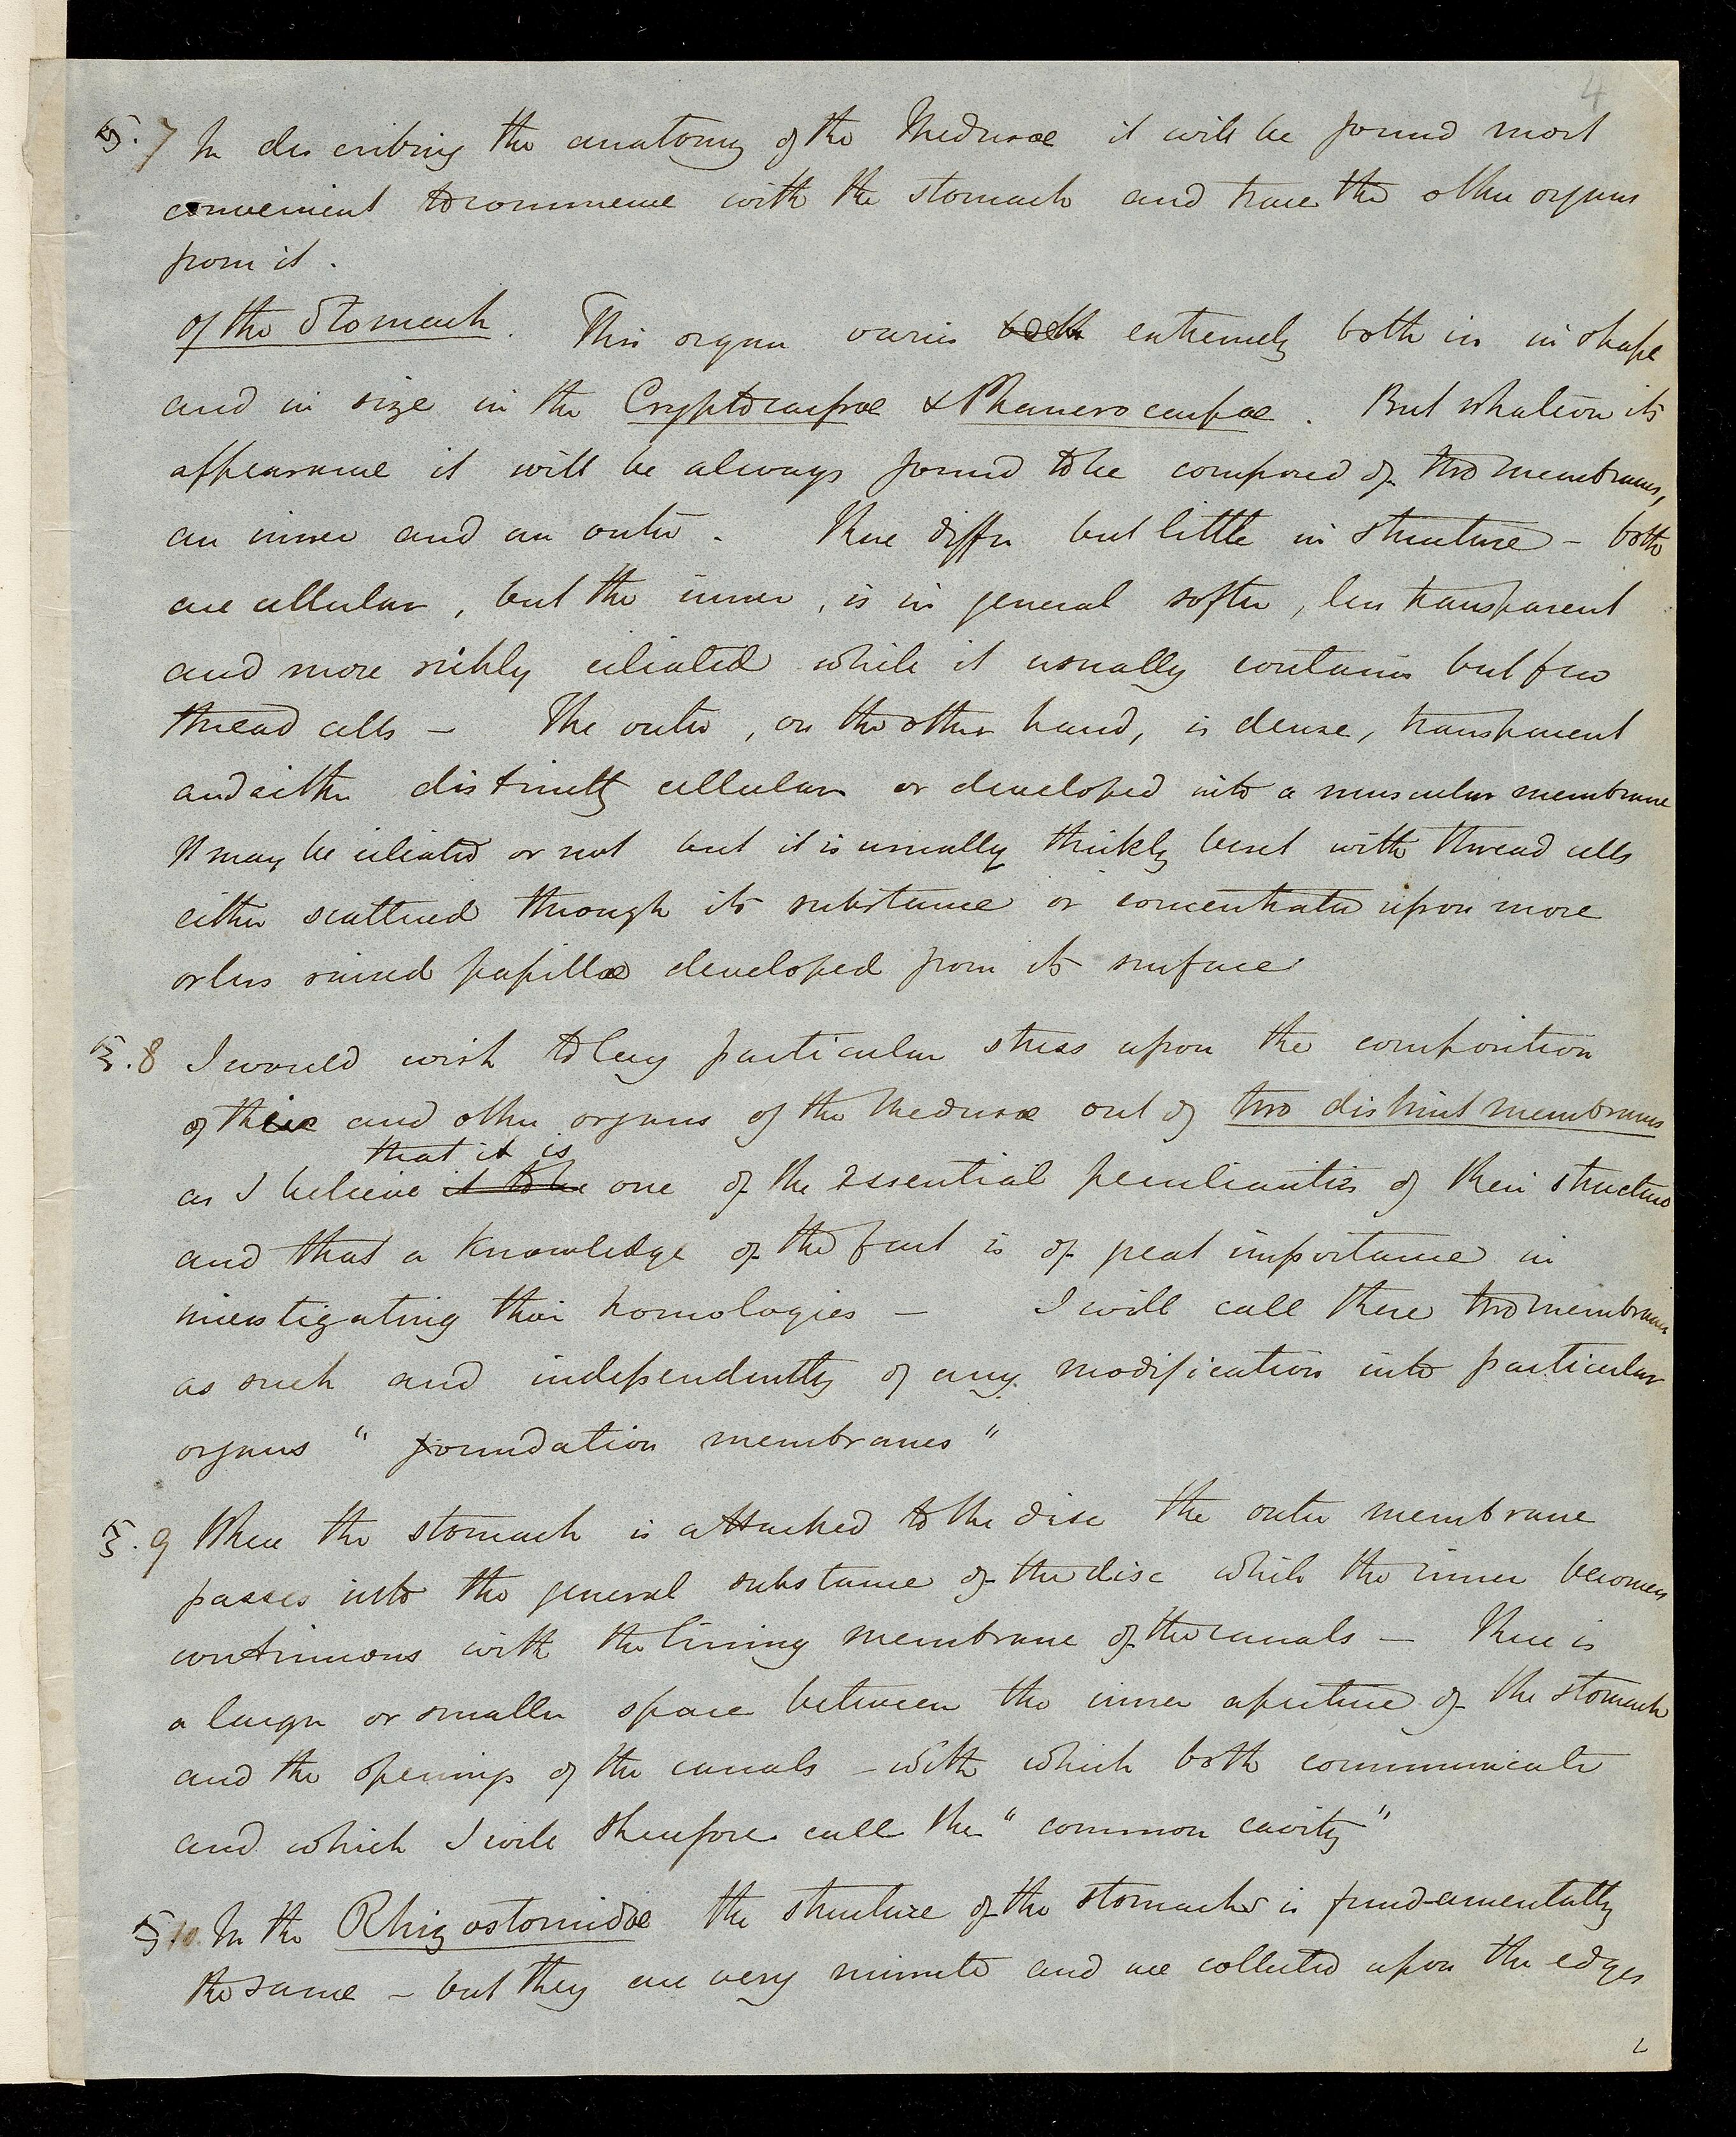 4
§. 7 In describing the anatomy of the Medusæ it will be found most
convenient to commence with the stomach and trace the other organs
from it.
Of the Stomach. This organ varies both extremely both in in shape
and in size in the Cryptocarpæ & Phanerocarpæ. But whatever its
appearance it will be always found to be composed of two membranes,
an inner and an outer. These differ but little in structure – both
are cellular, but the inner, is in general softer, less transparent
and more richly ciliated while it usually contains but few
thread cells – The outer, on the other hand, is dense, transparent
and either distinctly cellular or developed into a muscular membrane
It may be ciliated or not but it is usually thickly beset with thread cells
either scattered through its substance or concentrated upon more
or less raised papillæ developed from its surface
§. 8 I would wish to lay particular stress upon the composition
of this and other organs of the Medusæ out of two distinct membranes
that it is
as I believe it to be one of the essential peculiarities of their structure
and that a knowledge of the fact is of great importance in
investigating their homologies – I will call these two membranes
as such and independently of any modification into particular
organs " foundation membranes "
§. 9 When the stomach is attached to the disc the outer membrane
passes into the general substance of the disc while the inner becomes
continuous with the lining membrane of the canals – There is
a larger or smaller space between the inner aperture of the stomach
and the openings of the canals – with which both communicate
and which I will therefore call the " common cavity "
§ 10. In the Rhizostomidæ the structure of the stomachs is fundamentally
the same – but they are very minute and are collected upon the edges